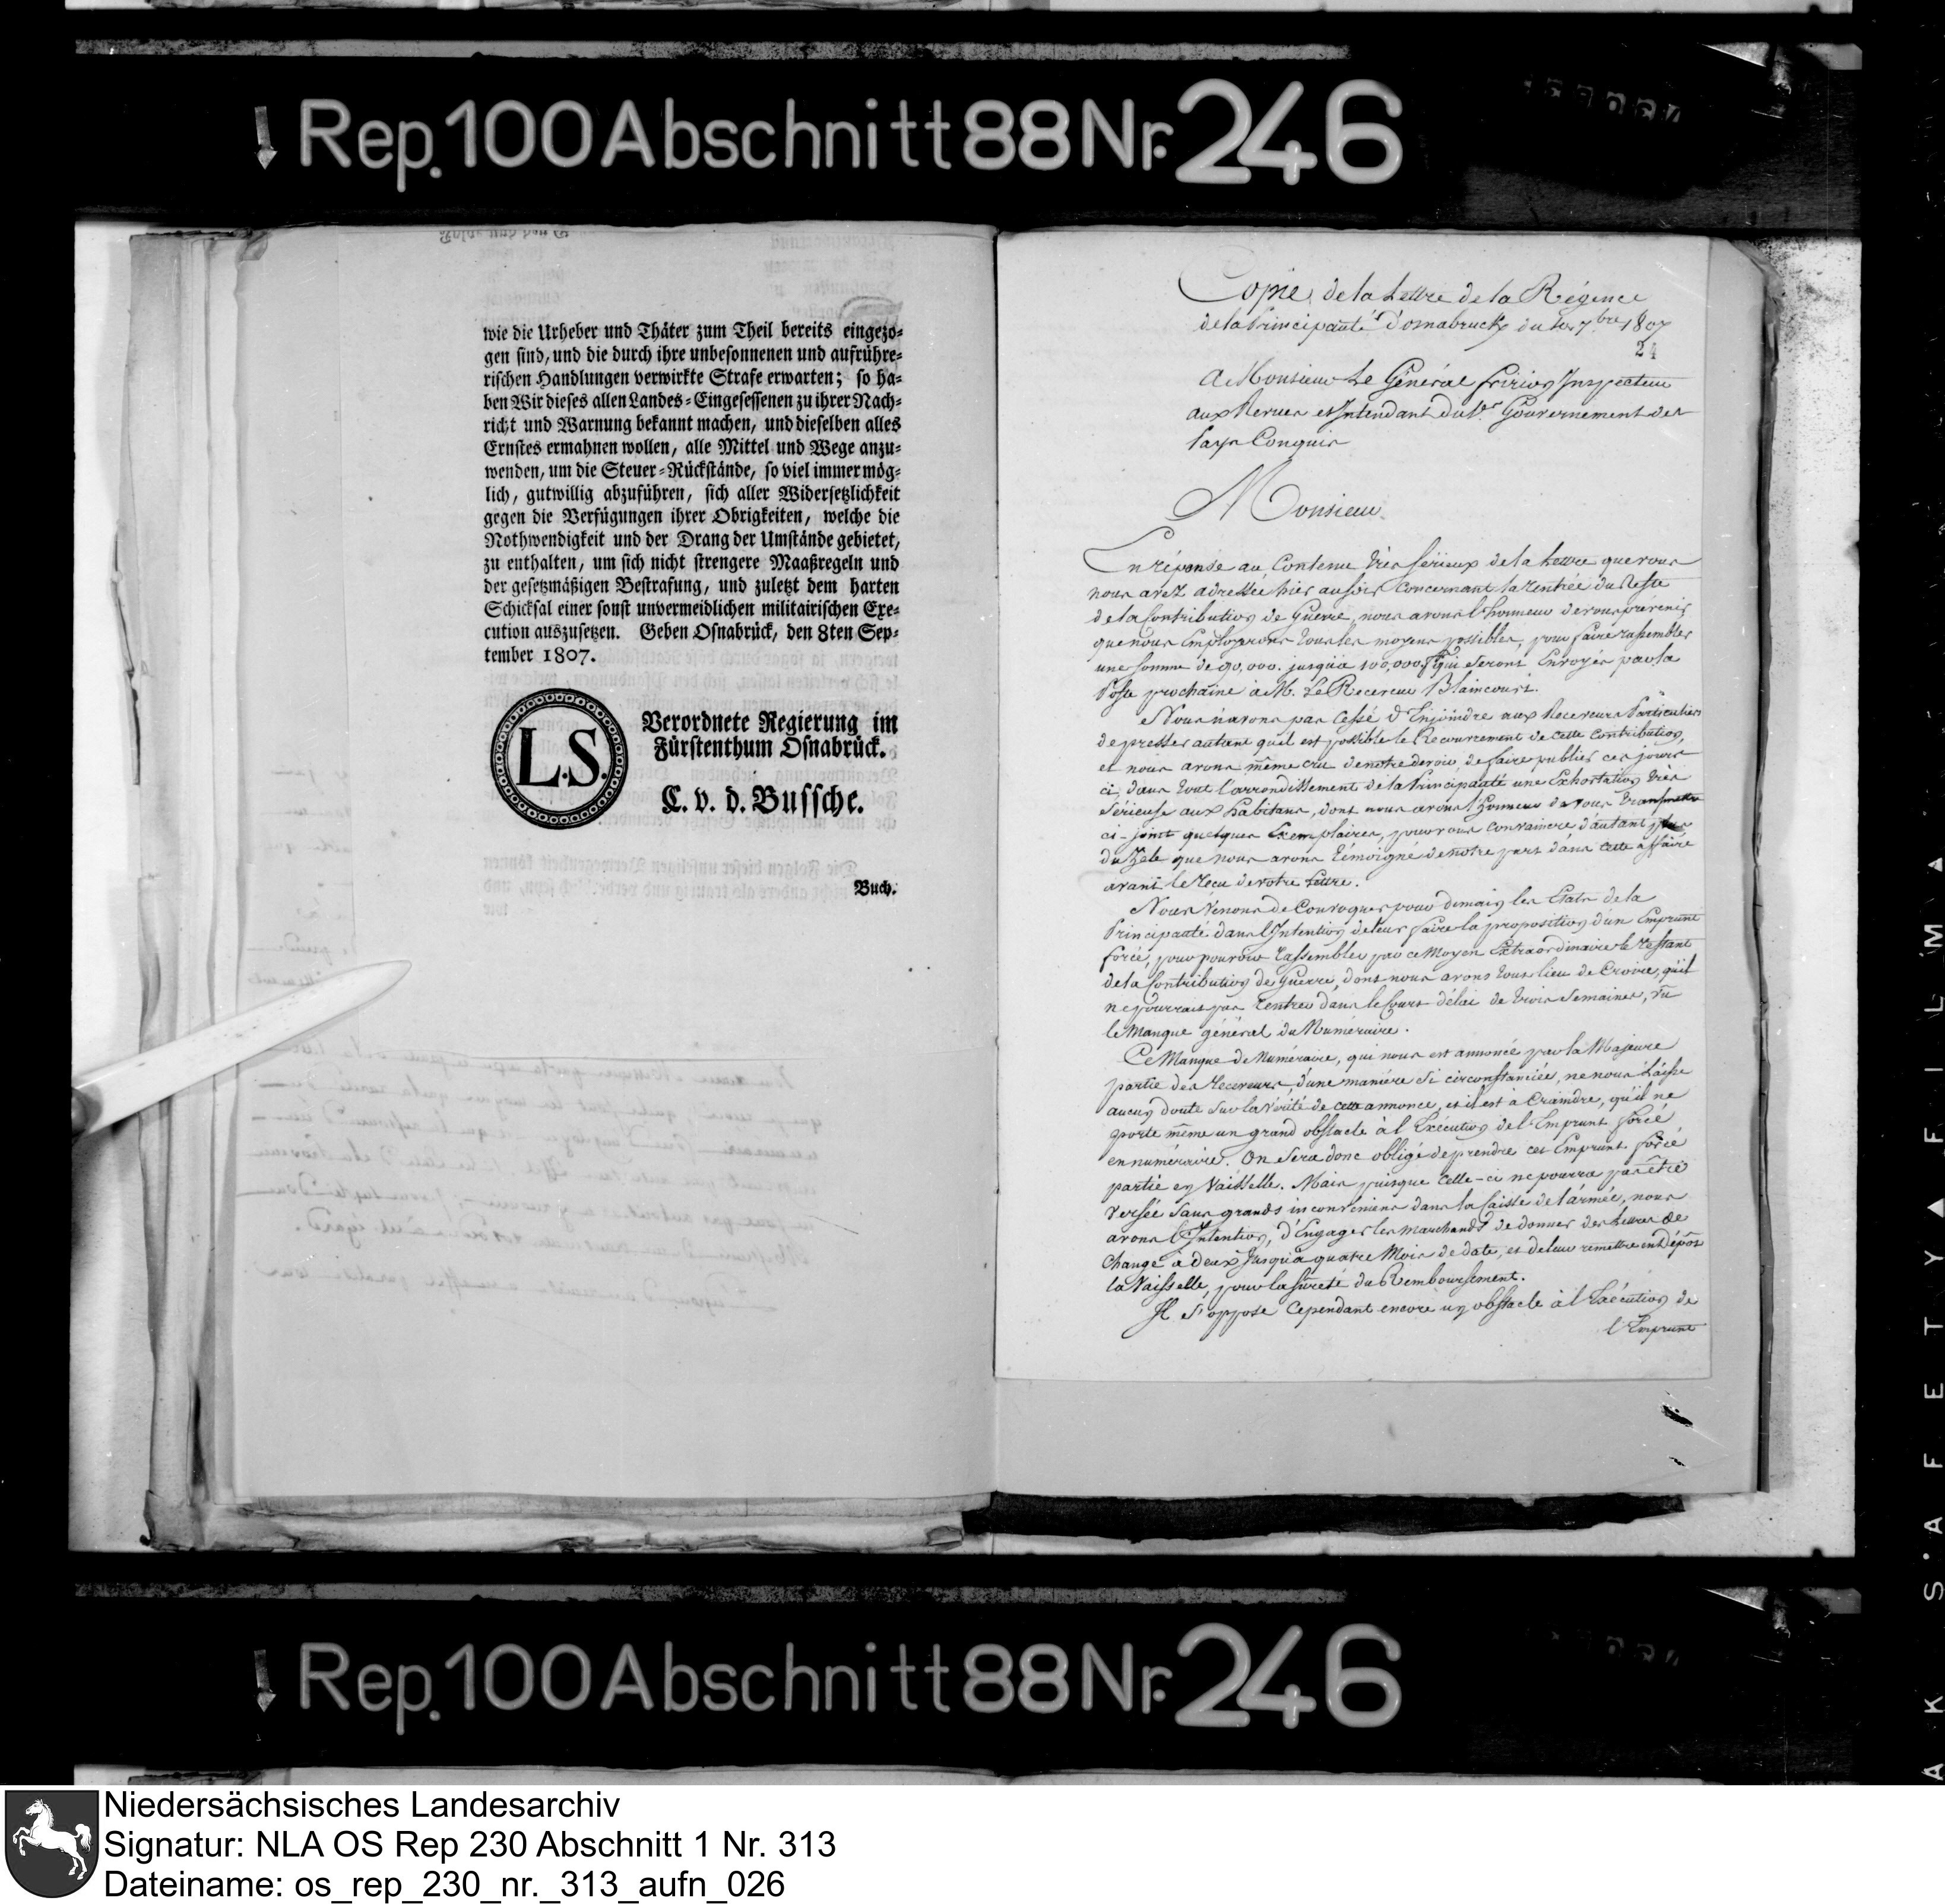 Rep. 100 Abschnitt 88 Nr. 246
wie die Urheber und Thäter zum Theil bereits eingezo-
gen sind, und die durch ihre unbesonnenen und aufrühre-
rischen Handlungen verwirkte Strafe erwarten; so ha-
ben Wir dieses allen Landes-Eingesessenen zu ihrer Nach-
richt und Warnung bekannt machen, und dieselben alles
Ernstes ermahnen wollen, alle Mittel und Wege anzu-
wenden, um die Steuer-Rückstände, so viel immer mög-
lich, gutwillig abzuführen, sich aller Widersetzlichkeit
gegen die Verfügungen ihrer Obrigkeiten, welche die
Nothwendigkeit und der Drang der Umstände gebietet,
zu enthalten, um sich nicht strengere Maaßregeln und
der gesetzmäßigen Bestrafung, und zuletzt dem harten
Schicksal einer sonst unvermeidlichen militairischen Exe-
cution auszusetzen. Geben Osnabrück, den 8ten Sep-
tember 1807.
L.S.
Verordnete Regierung im
Fürstenthum Osnabrück.
C. v. d. Bussche.
Buch.
Copie de la Lettre de la Régence
de la Principauté d'osnabruck du 7bre 1807
24
A Monsieur Le Général Fririon Inspecteur
aux Revues et Intendant du 1er Gouvernement des
Pays Conquis
Monsieur
En réponse au Contenu très sérieux de la Lettre que vous
nous avez adressée hier au soir concernant la rentrée du Reste
de la Contribution de Guerre, nous avons l'honneur de vous prévenir
que nous Employerons tous les moyens possibles, pour faire rassembler
une somme de 90,000. jusqu'à 100,000 qui seront Envoyés par la
Poste prochaine à M. Le Receveur Blaincourt.
Nous n'avons pas Cessé d'Enjoindre aux Receveurs Particuliers
de presser autant qu'il est possible le Recouvrement de cette Contribution,
et nous avons même cru de notre devoir, de faire publier ces jours
ci, dans tout l'arrondissement de la Principauté une Exhortation très
sérieuse aux habitans, dont nous avons l'honneur de vous transmettre
ci-joint quelques Exemplaires, pour vous convaincre d'autant plus
du Zèle que nous avons témoigné de notre part dans cette affaire
avant le reçu de votre Lettre.
Nous Venons de Convoquer pour demain les Etats de la
Principauté dans l'Intention de leur faire la proposition d'un Emprunt
forcé, pour pouvoir rassembler par ce Moyen Extraordinaire le restant
de la Contribution de Guerre, dont nous avons tout lieu de Croire, qu'il
ne pourrait pas rentrer dans le Court délai de trois semaines, vu
le Manque général du Numéraire.
Ce Manque de Numéraire, qui nous est annoncé par la Majeure
partie des receveurs, d'une manière si circonstanciée, ne nous laisse
aucun doute sur la Vérité de cette annonce, et il est à Craindre, qu'il ne
porte même un grand obstacle à l'Exécution de l'Emprunt forcé
en numéraire. On sera donc obligé de prendre cet Emprunt forcé
partie en Vaisselle. Mais puisque celle-ci ne pourra pas être
Versée sans grands inconvéniens dans la Caisse de l'armée, nous
avons l'Intention, d'Engager les Marchands de donner des Lettres de
Change à deux jusqu'à quatre Mois de date, et de leur remettre en dépôt
la Vaisselle, pour la sûreté du Remboursement.
Il s'oppose Cependant encore un obstacle à l'Exécution de
l'Emprunt
Rep. 100 Abschnitt 88 Nr. 246
AK S'AFETY FILM
Niedersächsisches Landesarchiv
Signatur: NLA OS Rep 230 Abschnitt 1 Nr. 313
Dateiname: os_rep_230_nr._313_aufn_026